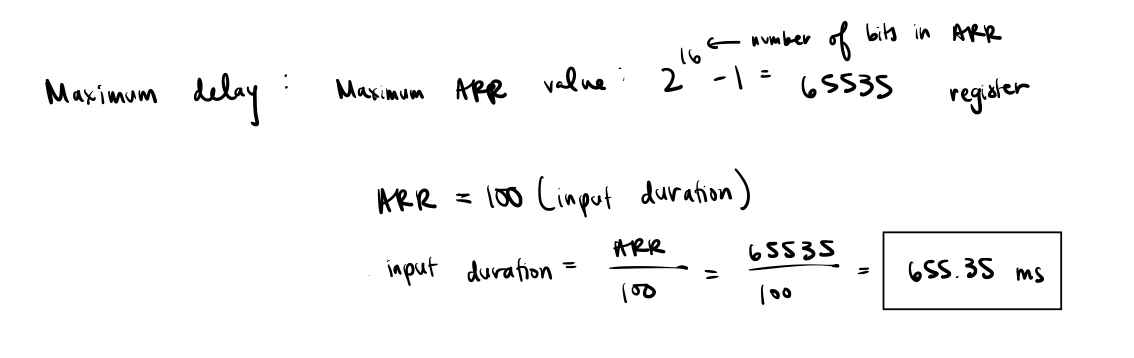 Maximum delay : Maximum ARR value : 2^16 - 1 = 65535 ← number of bits in ARR register
ARR = 100 (input duration)
input duration = ARR/100 = 65535/100 = 655.35 ms